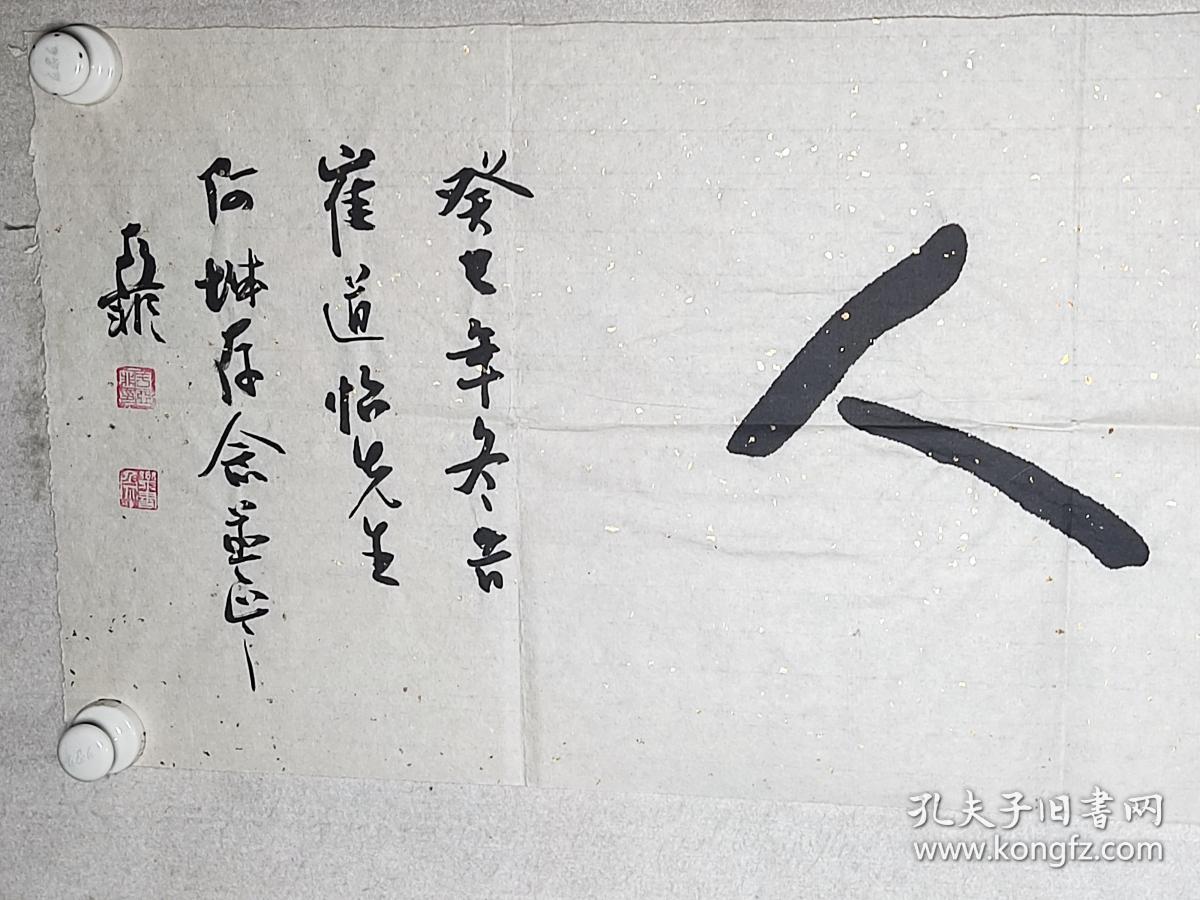 人
癸巳年冬吉
崔道怡先生
何坤存念并正
孔夫子旧書网
www.kongfz.com